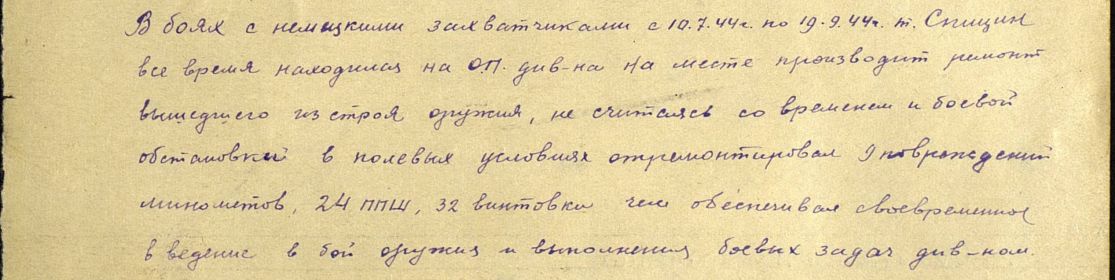 В боях с немецкими захватчиками с 10.7.44г. по 19.9.44г. т. Спицин
все время находился на О.П. див-на на месте производит ремонт
вышедшего из строя оружия, не считаясь со временем и боевой
обстановкой в полевых условиях отремонтировал 9 повреждений
минометов, 24 ППШ, 32 винтовки чем обеспечивал своевременное
введение в бой оружия и выполнения боевых задач див-ном.